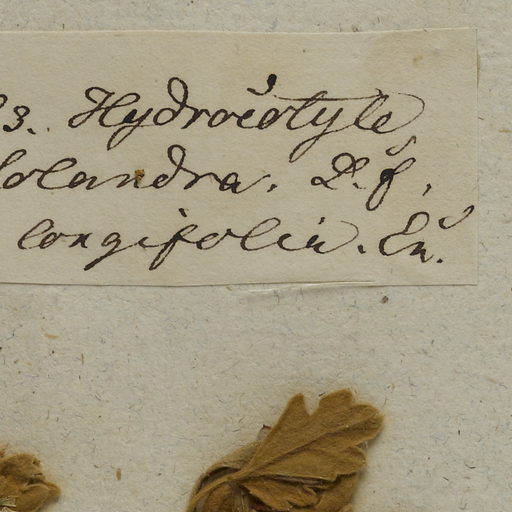 3. Hydrocotyle
Solandra. L. f.
longifolia. En.